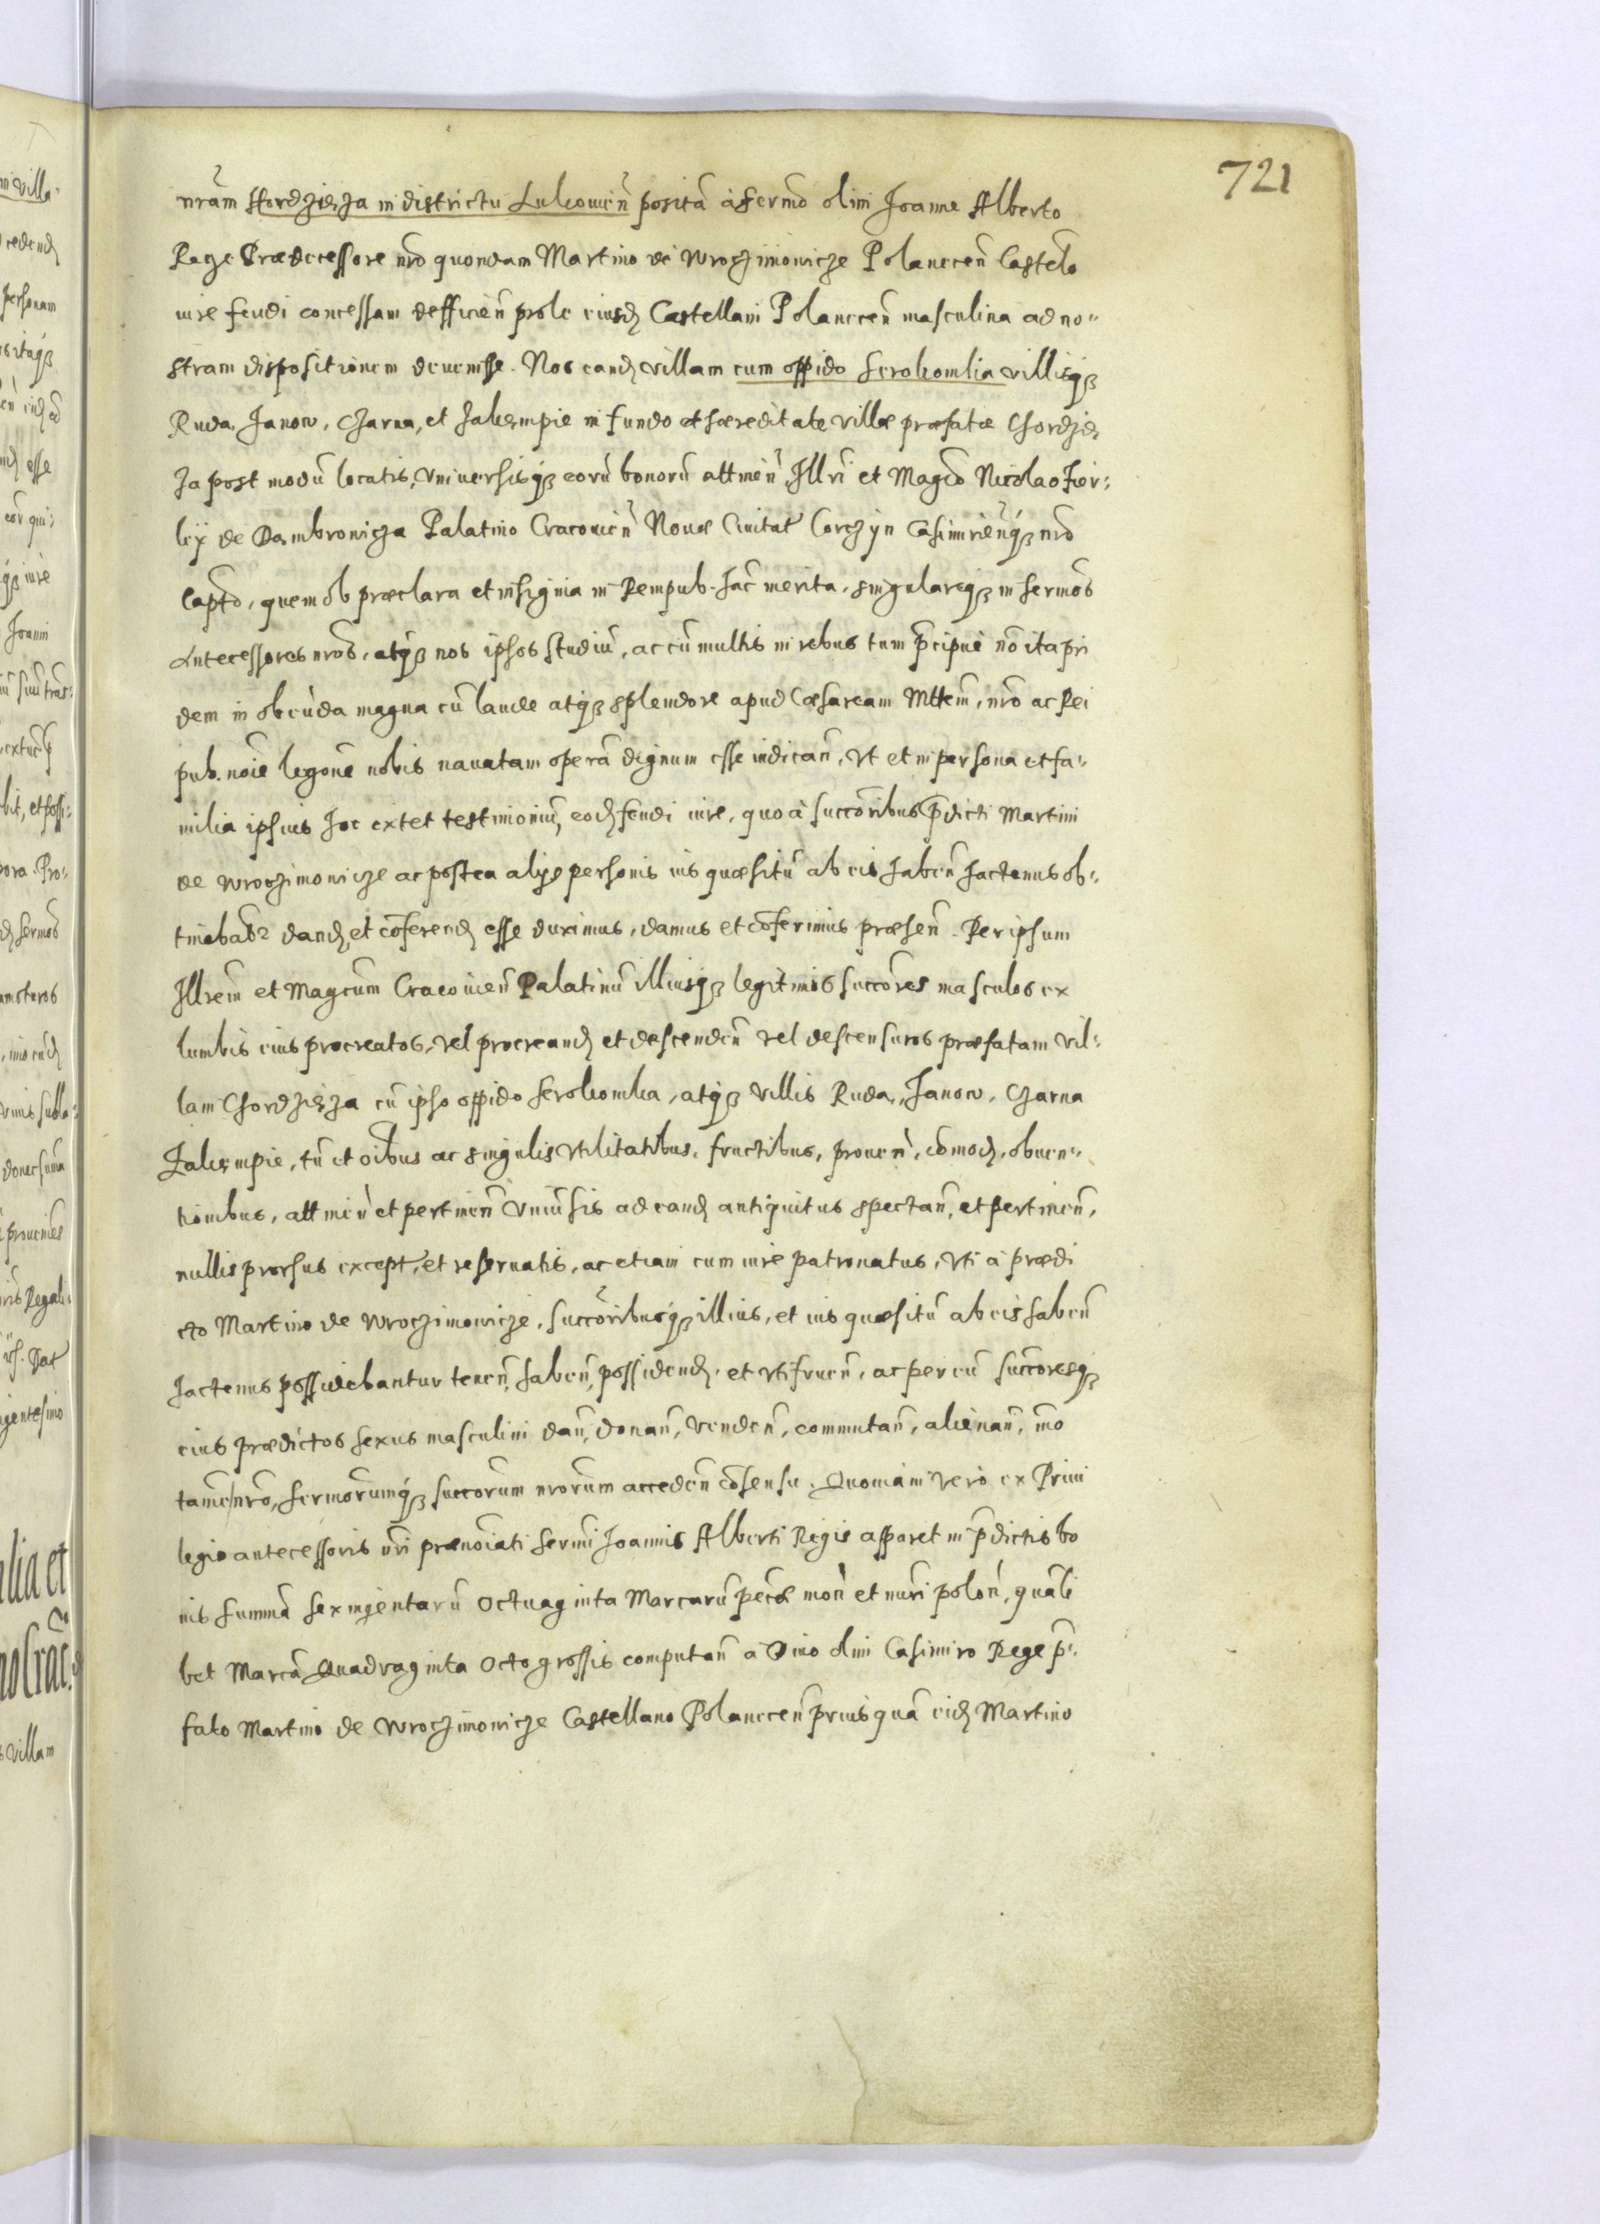 721
nrãm Hordzieza in districtu Lukouien̄ positã à Sermo olim Joanne Alberto
Rege Prædecessore nrõ quondam Martino de Wroczimowicze Polanecen̄ Castelo
iure feudi concessam defficien̄ prole eiusd Castellani Polanecen̄ masculina ad no-
stram dispositionem deuenisse. Nos eand villam cum oppido Serokomlia villisq3
Ruda, Janow, Charna, et Zakempie in fundo et hæreditate villæ præfatæ Chordzie
za post modũ locatis, Vniuersisq3 eorũ bonorũ attinen̄, Illri et Magco Nicolao Fir-
ley de Dambrowicza Palatino Cracouien̄ Nouæ Ciuitat Corczyn Casimirien̄q3 nrõ
Capto, quem ob præclara et insignia in Rempub. hac merita, singulareq3 in sermos
Antecessores nrõs, atq3 nos ipsos studiũ, ac cũ multis in rebus tum p̄cipuè nõ ita pri
dem in obeũda magna cũ laude atq3 splendore apud Cæsaream Mttem, nrõ ac Rei
pub. noie legone nobis nauatam operã dignum esse iudican̄, Vt et in persona et fa-
milia ipsius hoc extet testimoniũ, eod feudi iure, quo à succoribus p̄dicti Martini
de Wroczimowicze ac postea alijs personis ius quæsitũ ab eis haben̄ hactenus ob-
tinebat2 dand et cõferend esse duximus, damus et cõferimus præsen̄. Per ipsum
Illrem et Magcum Cracouien̄ Palatinũ illiusq3 legitimos succores masculos ex
lumbis eius procreatos, vel procreand et descenden̄ vel descensuros præfatam vil-
lam Chordzieza cũ ipso oppido Serokomla, atq3 villis Ruda, Janow, Charna
Zakempie, tũ et oibus ac singulis vtilitatibus, fructibus, prouen̄, cõmod, obuen-
tionibus, attinen̄ et pertinen̄ Vniuersis ad eand antiquitus spectan̄, et pertinen̄,
nullis prorsus except, et reseruatis, ac etiam cum iure patronatus, vti à prædi
cto Martino de Wroczimowicze, succoribusq3 illius, et ius quæsitũ ab eis haben̄
hactenus possidebantur tenen̄, haben̄, possidend, et vtifruen̄, ac per eũ succoresq3
eius prædictos sexus masculini dan̄, donan̄, venden̄, commutan̄, alienan̄, imo
tame nrõ, sermorumq3 succorum nrorum acceden̄ cõsensu. Quoniam verò ex Priui
legio antecessoris nri prænoiati Sermi Joannis Alberti Regis apparet in p̄dictis bo
nis summã sexingentarũ octuaginta Marcarũ pecæ mon̄ et nuri polon̄, quali
bet Marcã Quadraginta octo grossis computan̄ à Diuo olim Casimiro Rege p̄-
fato Martino de Wroczimowicze Castellano Polanecen̄ prius quã eid Martino